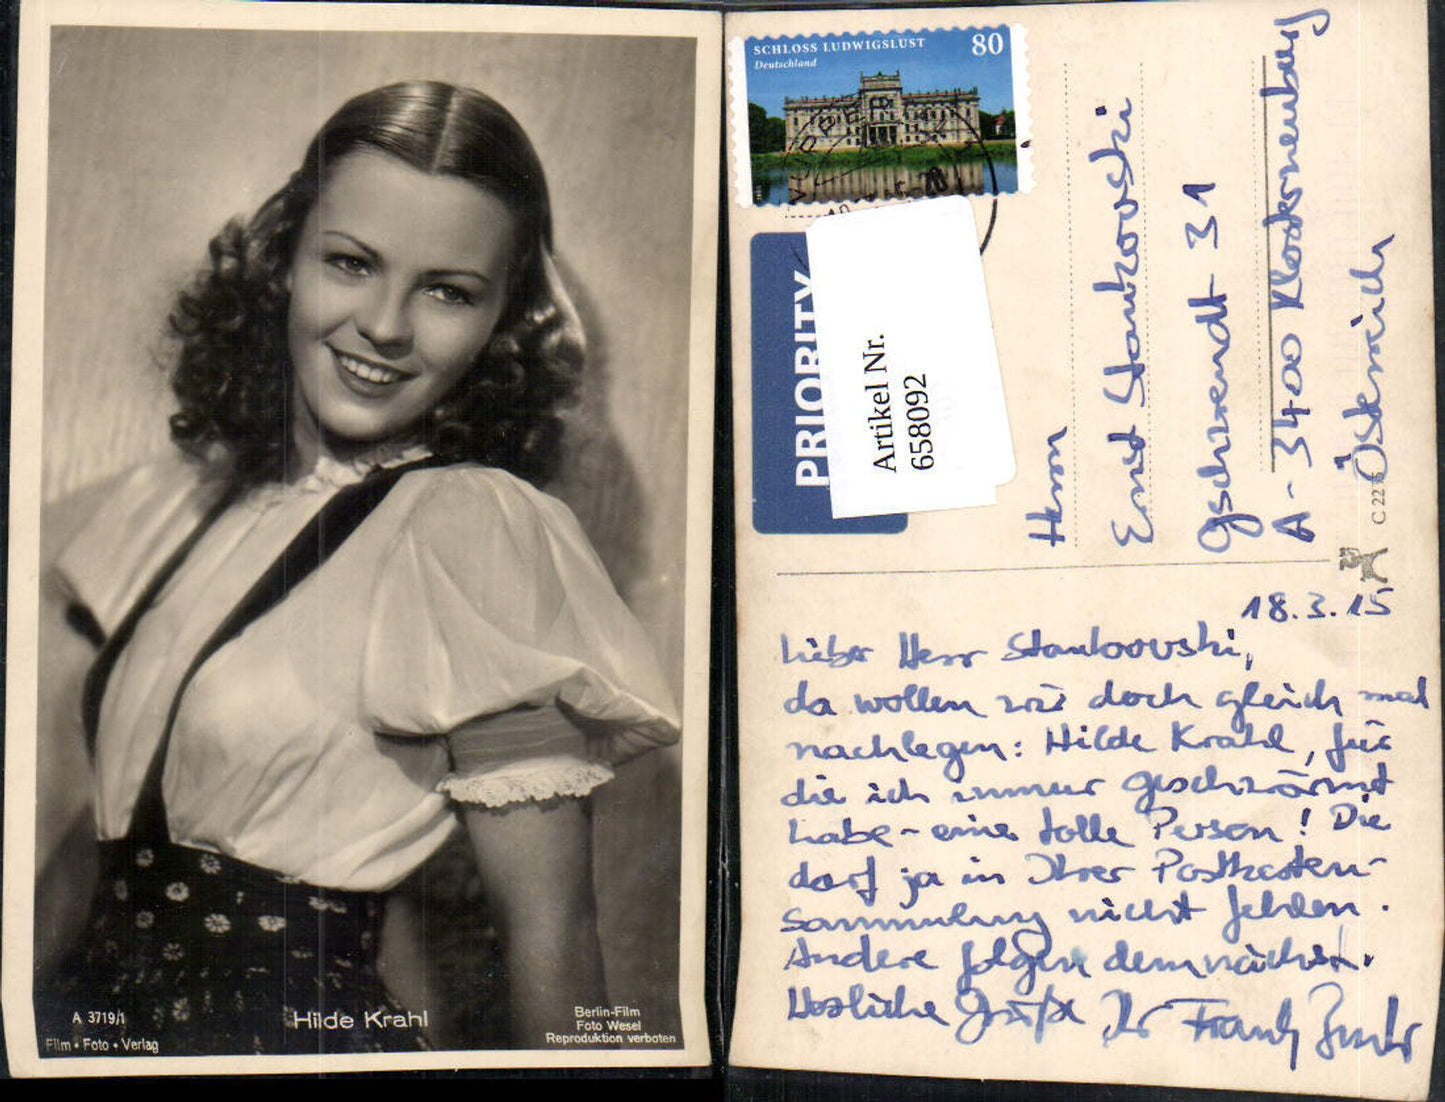 A 3719/1
Film • Foto • Verlag
Hilde Krahl
Berlin-Film
Foto Wesel
Reproduktion verboten
SCHLOSS LUDWIGSLUST 80
Deutschland
PRIORITY
Artikel Nr.
658092
Herrn
Ernst Stankovski
Gschwendt 31
A-3400 Klosterneuburg
Österreich
C 227
18.3.15
Lieber Herr Stankovski,
da wollen wir doch gleich mal
nachlegen: Hilde Krahl, für
die ich immer geschwärmt
habe - eine tolle Person! Die
darf ja in Ihrer Postkarten-
sammlung nicht fehlen.
Andere folgen demnächst.
Herzliche Grüße Ihr Frank